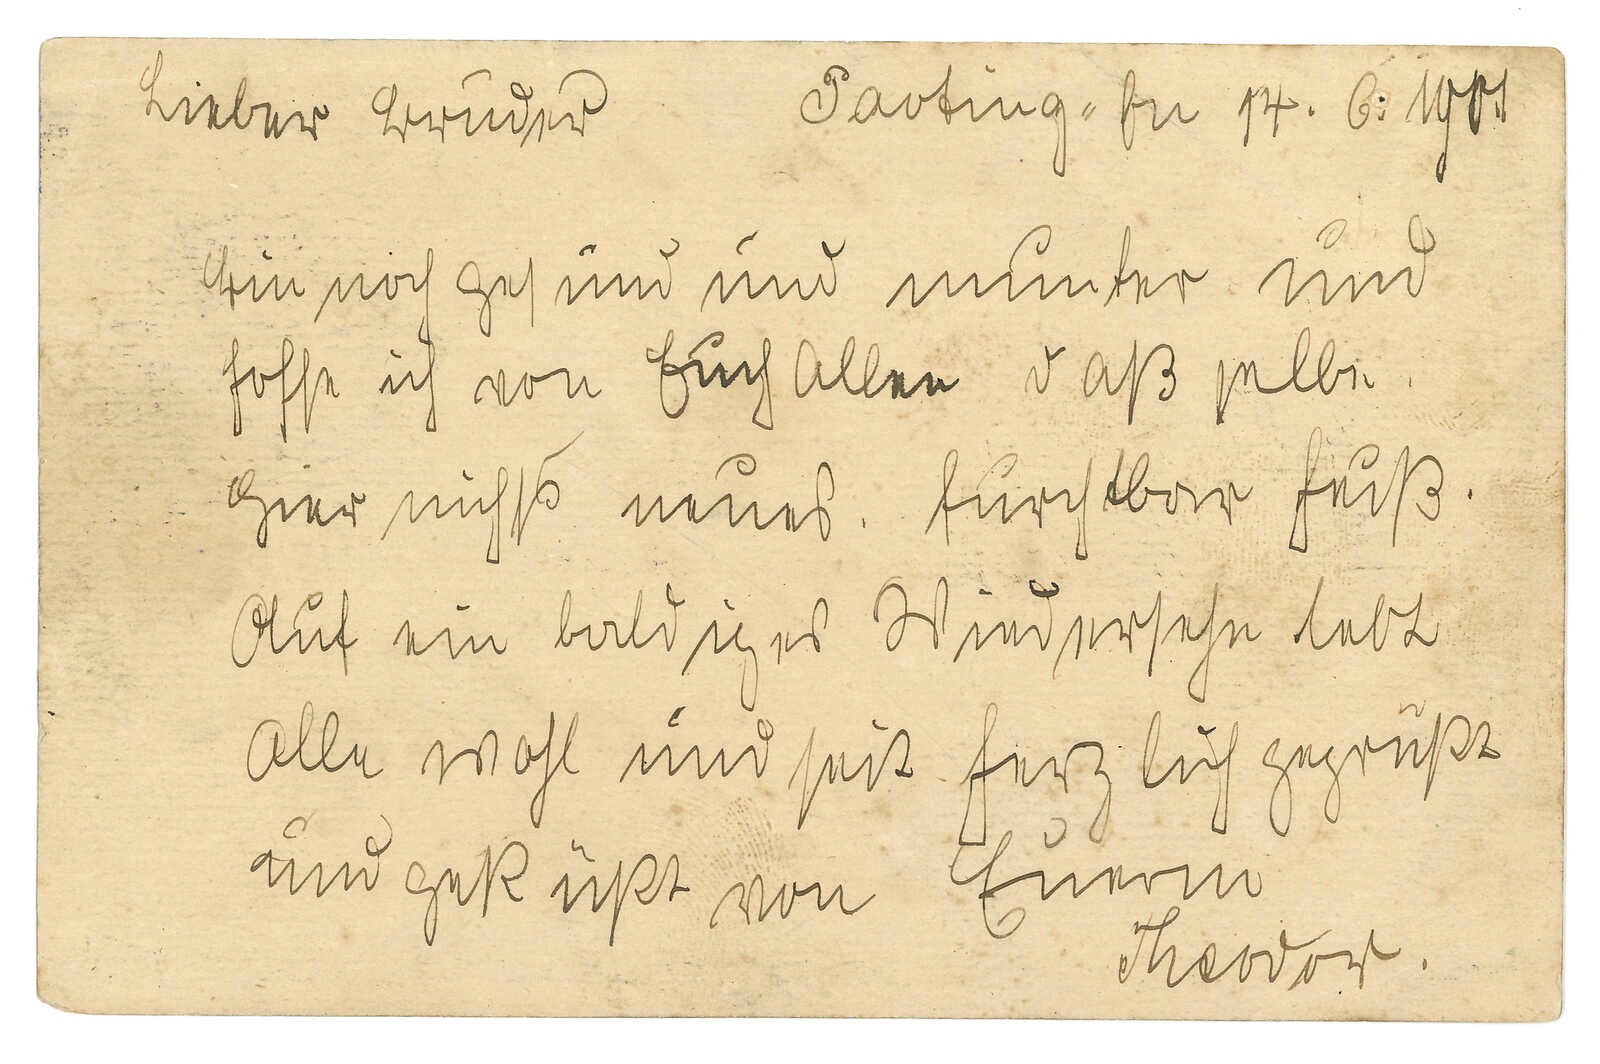 Lieber Bruder Paoting-fu 14. 6. 1901
bin noch gesund und munter und
hoffe ich von Euch Allen daß selbe.
Hier nichts neues. furchtbar heiß.
Auf ein baldiges Wiedersehn lebt
Alle wohl und seit herzlich gegrüßt
und geküßt von Euerm
Theodor.